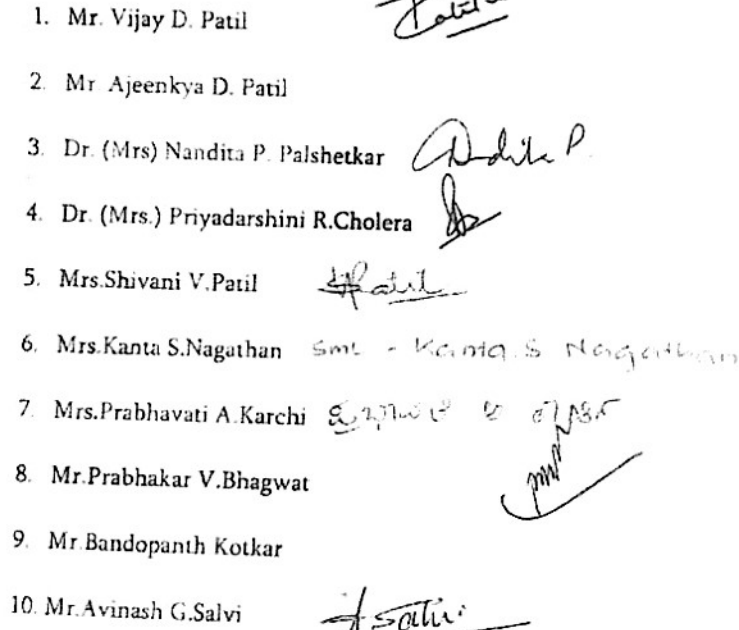 1. Mr. Vijay D. Patil
2. Mr Ajeenkya D. Patil
3. Dr. (Mrs) Nandita P. Palshetkar Nandita P.
4. Dr. (Mrs.) Priyadarshini R.Cholera
5. Mrs.Shivani V.Patil SPatil
6. Mrs.Kanta S.Nagathan Smt - Kanta.S Nagathan
7. Mrs.Prabhavati A.Karchi
8. Mr.Prabhakar V.Bhagwat
9. Mr.Bandopanth Kotkar
10. Mr.Avinash G.Salvi